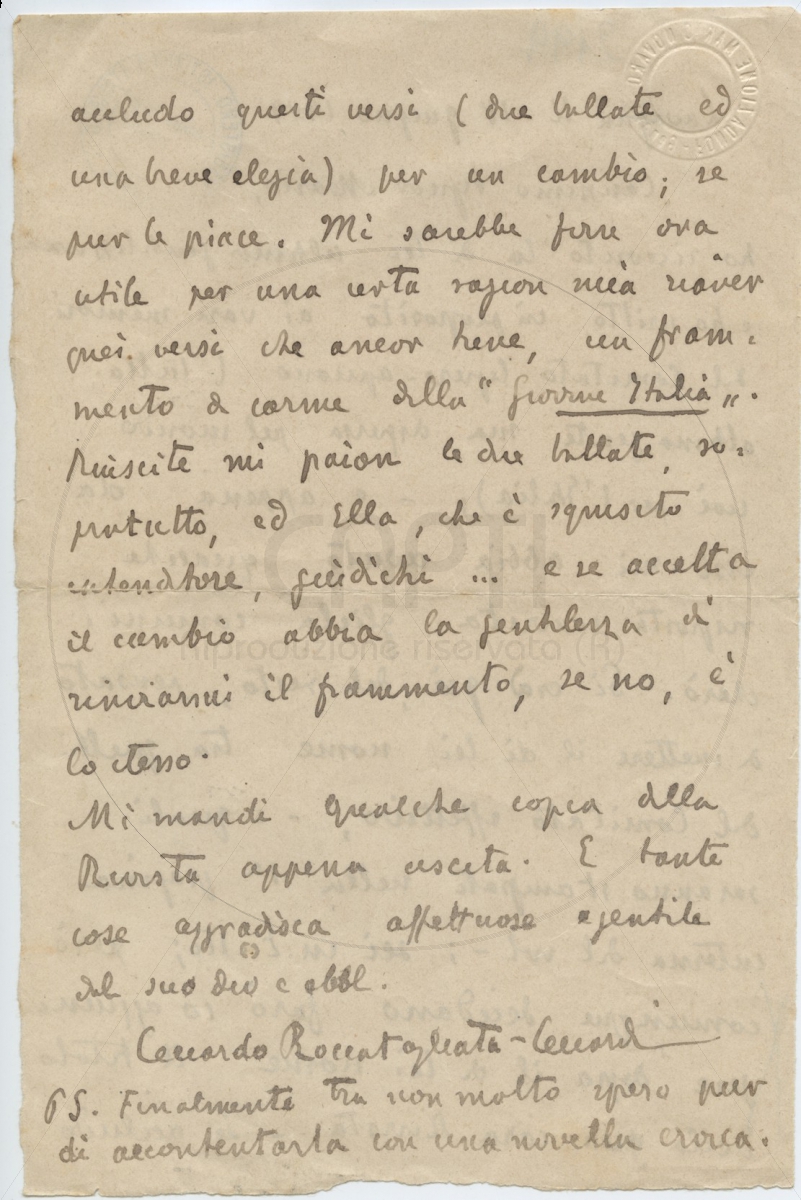 accludo questi versi ( due ballate ed
una breve elegia) per un cambio; se
pur le piace. Mi sarebbe forse ora
utile per una certa ragion mia riaver
quei versi che ancor tiene, un fram=
mento di carme della "Giovine Italia„.
Riuscite mi paion le due ballate, so=
pratutto, ed Ella, che è squisito
intenditore, giudichi ... e se accetta
il cambio abbia la gentilezza di
rinviarmi il frammento, se no, è
lo stesso.
Mi mandi qualche copia della
Rivista appena uscita. E tante
cose aggradisca affettuose e gentile
dal suo dev e obbl.
Ceccardo Roccatagliata-Ceccardi
PS. Finalmente tra non molto spero pur
di accontentarla con una novella eroica.
riproduzione riservata (R)